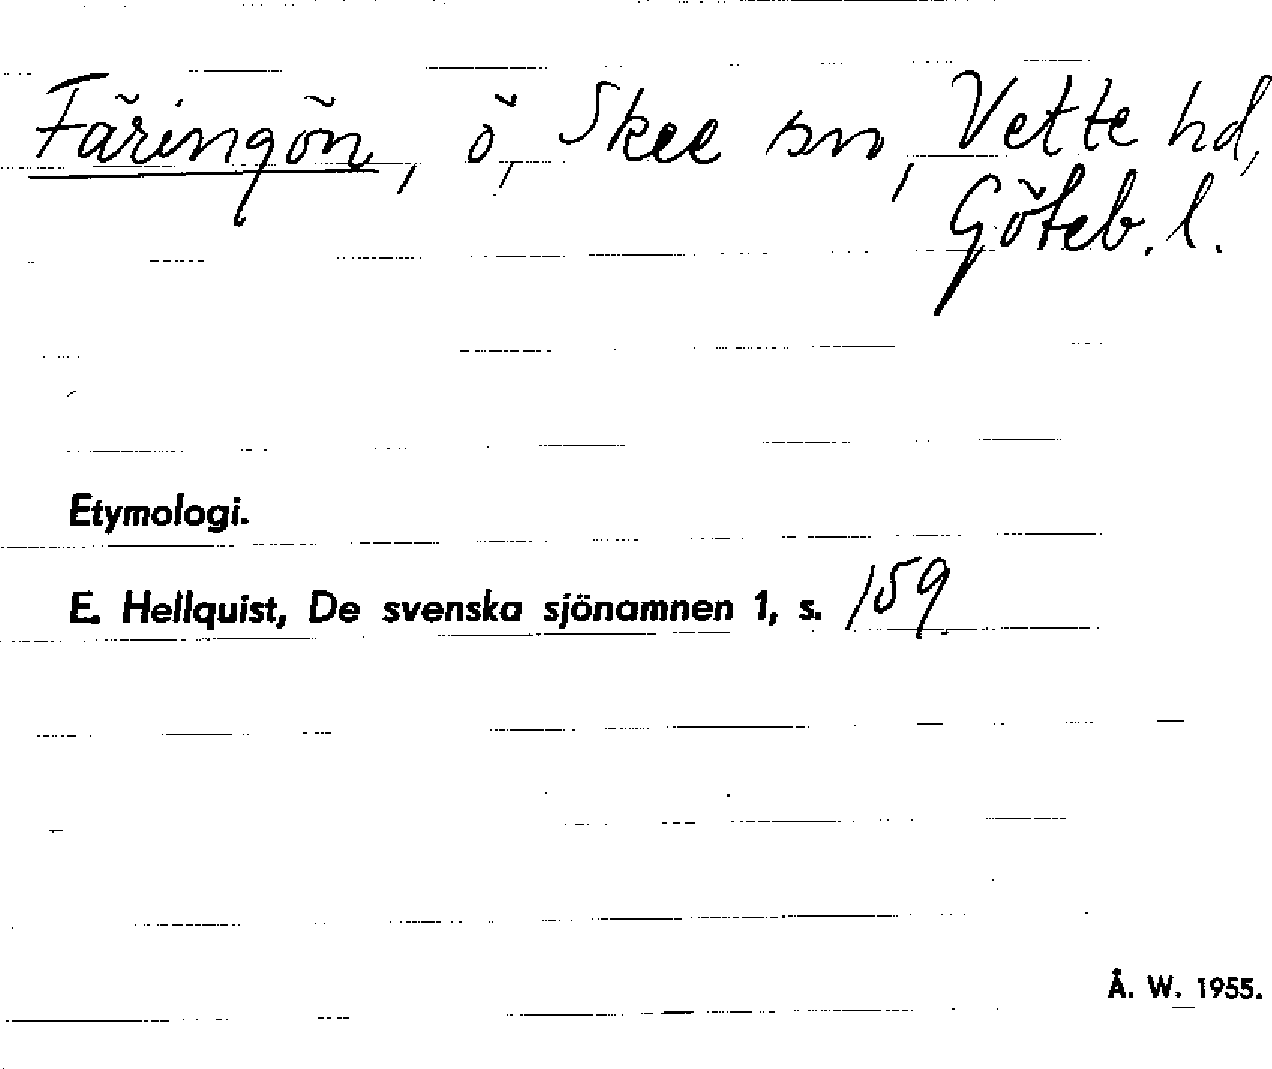 Färingön, ö, Skee sn, Vette hd,
Göteb. l.
Etymologi.
E. Hellquist, De svenska sjönamnen 1, s. 159
Å. W. 1955.